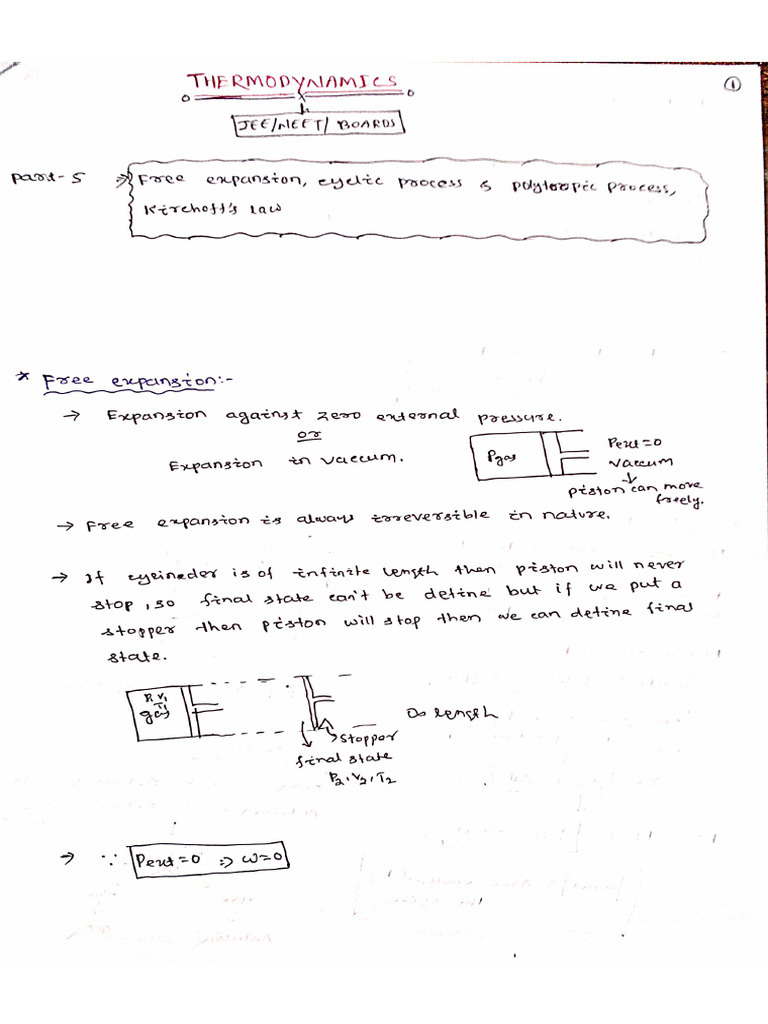 THERMODYNAMICS
①
JEE/NEET/ BOARDS
Part-5 ⇒ Free expansion, cyclic process & polytropic process,
Kirchoff's law
* Free expansion:-
→ Expansion against zero external pressure.
or
Expansion in vaccum.
Pgas
Pext=0
vaccum
piston can move
freely.
→ Free expansion is always irreversible in nature.
→ If cyclinder is of infinite length then piston will never
stop, so final state can't be define but if we put a
stopper then piston will stop then we can define final
state.
P1 V1
T1
gas
∞ length
stopper
final state
P2, V2, T2
→ ∵ Pext=0 ⇒ w=0